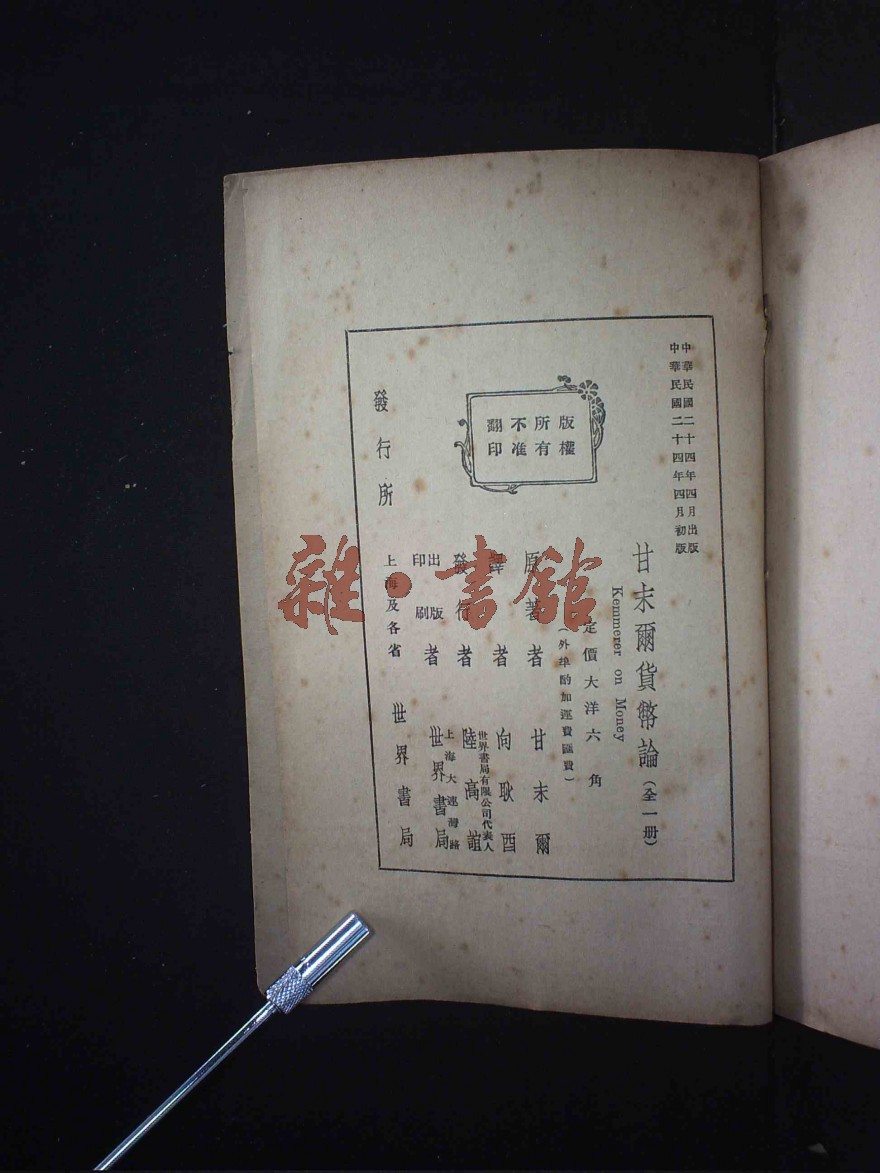 中華民國二十四年四月出版
中華民國二十四年四月初版
甘末爾貨幣論(全一册)
Kemmerer on Money
定價大洋六角
(外埠酌加運費匯費)
原著者 甘末爾
譯者 向耿酉
發行者 世界書局有限公司代表人 陸高誼
出版印刷者 上海大連灣路 世界書局
發行所 上海及各省 世界書局
版權
所有
不准
翻印
雜·書館